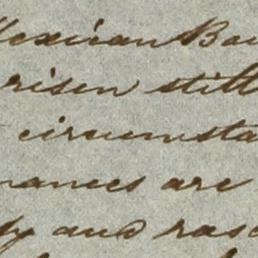 Mexican Bou
risen still
circumsta
nances are
and rasc